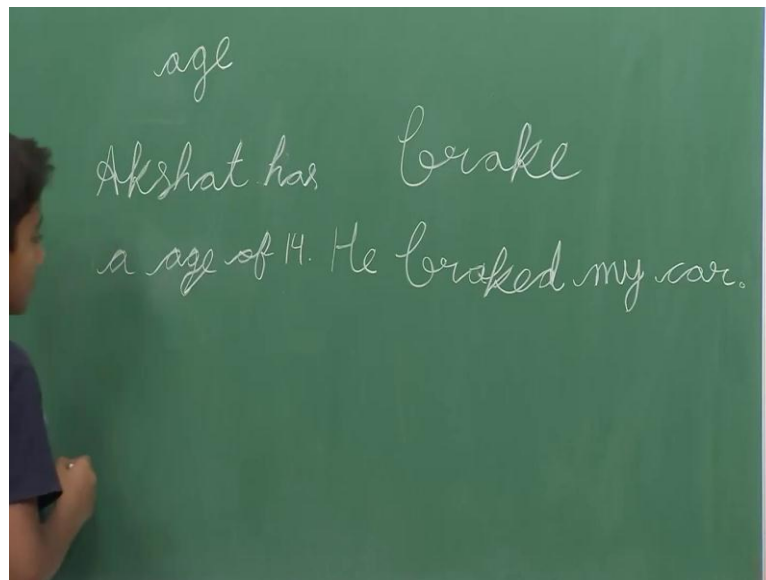 age
Akshat has brake
a age of 14. He braked my car.